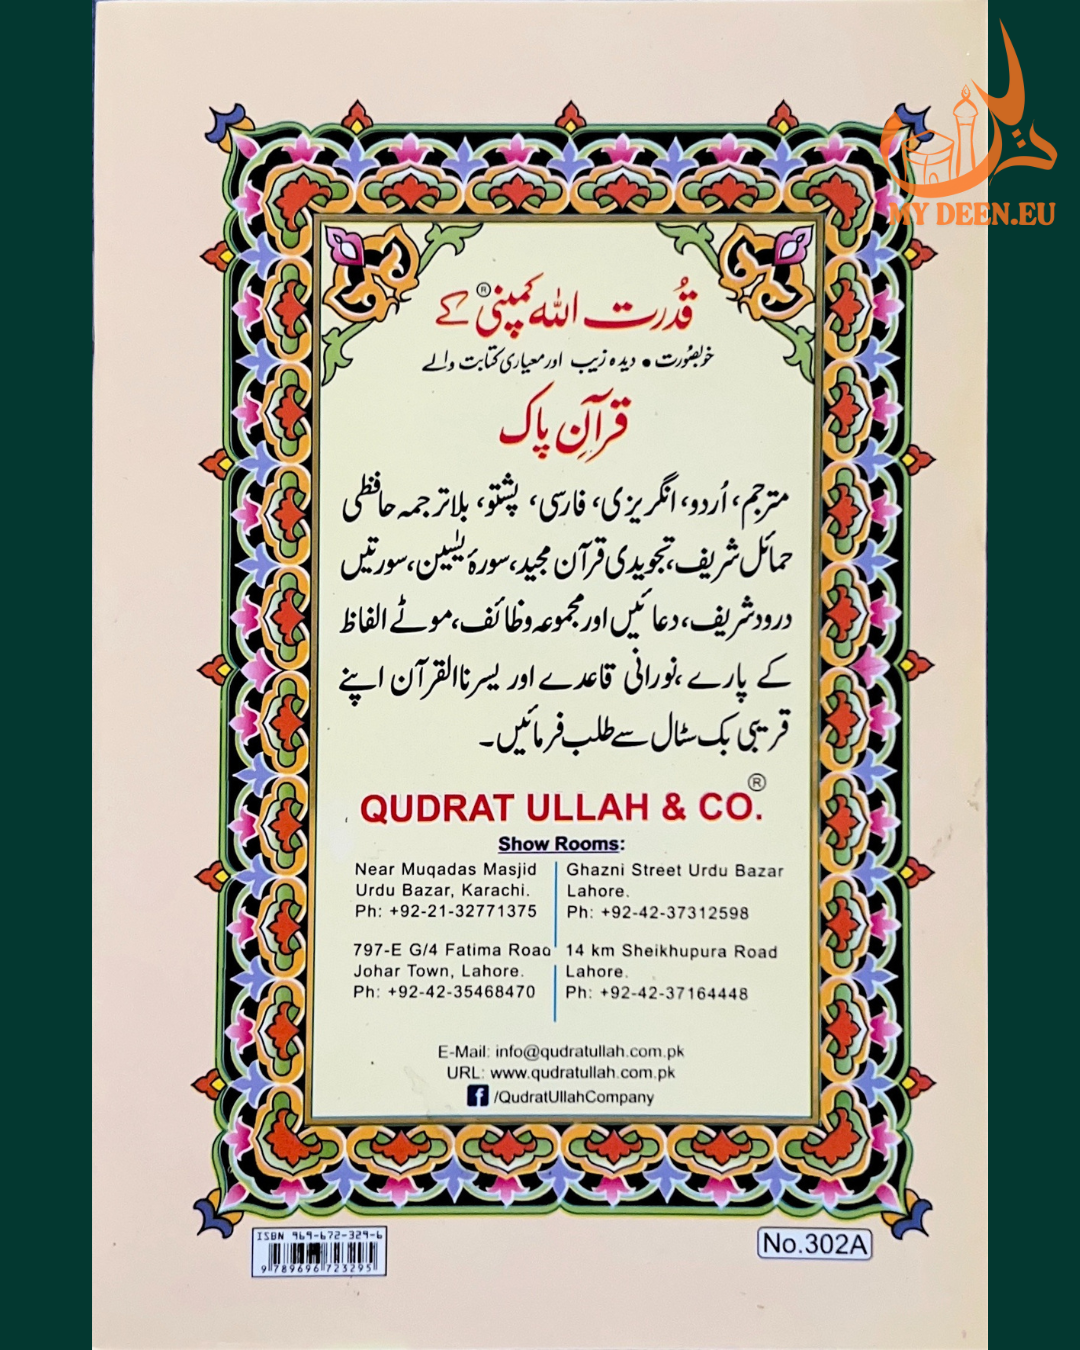 MY DEEN.EU
قُدرت اللہ کمپنی® کے
خوبصُورت • دیدہ زیب اور معیاری کتابت والے
قرآنِ پاک
مترجم، اُردو، انگریزی، فارسی، پشتو، بلاترجمہ حافظی
حمائل شریف، تجویدی قرآن مجید، سورۂ یٰسین، سورتیں
درود شریف، دعائیں اور مجموعہ وظائف، موٹے الفاظ
کے پارے، نورانی قاعدے اور یسرنا القرآن اپنے
قریبی بک سٹال سے طلب فرمائیں۔
QUDRAT ULLAH & CO.®
Show Rooms:
Near Muqadas Masjid
Urdu Bazar, Karachi.
Ph: +92-21-32771375
Ghazni Street Urdu Bazar
Lahore.
Ph: +92-42-37312598
797-E G/4 Fatima Road
Johar Town, Lahore.
Ph: +92-42-35468470
14 km Sheikhupura Road
Lahore.
Ph: +92-42-37164448
E-Mail: info@qudratullah.com.pk
URL: www.qudratullah.com.pk
f /QudratUllahCompany
ISBN 969-672-329-6
9 789696 723295
No.302A